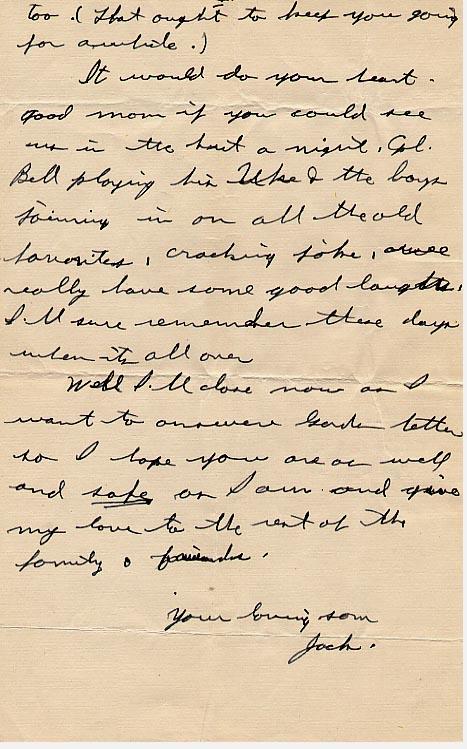 too. (That ought to keep you going
for awhile.)
It would do your heart
good mom if you could see
us in the hut a night, Cpl.
Bell playing his Uke & the boys
joining in on all the old
favorites, cracking joke,
really have some good laughs,
I'll sure remember these days
when its all over
Well I'll close now as I
want to answere Gordon letter
so I hope you are as well
and safe as I am and give
my love to the rest of the
family & friends.
Your loving son
Jack.